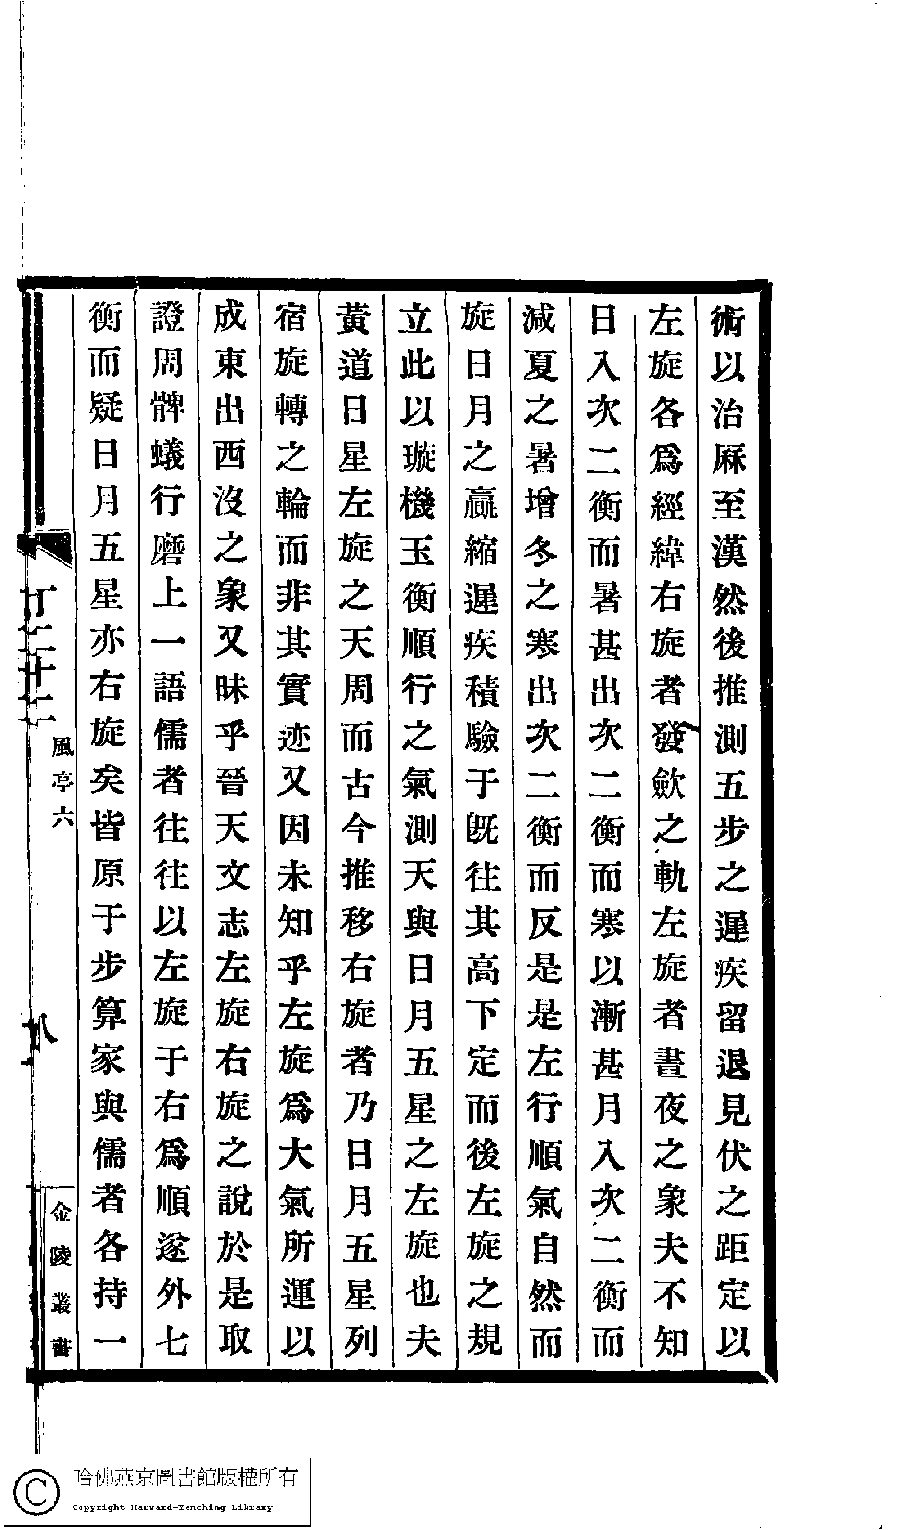 術以治厤至漢然後推測五步之遲疾留退見伏之距定以
左旋各爲經緯右旋者發斂之軌左旋者晝夜之象夫不知
日入次二衡而暑甚出次二衡而寒以漸甚月入次二衡而
減夏之暑增冬之寒出次二衡而反是是左行順氣自然而
旋日月之贏縮遲疾積驗于旣往其高下定而後左旋之規
立此以璇機玉衡順行之氣測天與日月五星之左旋也夫
黃道日星左旋之天周而古今推移右旋者乃日月五星列
宿旋轉之輪而非其實迹又因未知乎左旋爲大氣所運以
成東出西沒之象又昧乎晉天文志左旋右旋之說於是取
證周髀蟻行磨上一語儒者往往以左旋于右爲順遂外七
衡而疑日月五星亦右旋矣皆原于步算家與儒者各持一
風亭六
八
金陵叢書
哈佛燕京圖書館版權所有
Copyright Harvard-Yenching Library